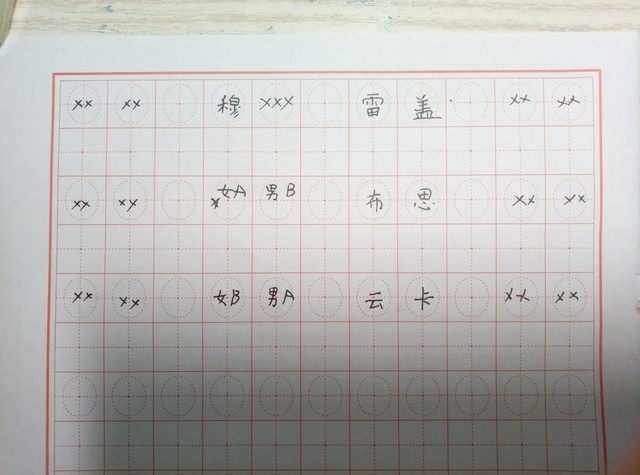 ×× ×× 穆 ××× 雷 盖 ×× ××
×× ×× ×女A 男B 布 思 ×× ××
×× ×× 女B 男A 云 卡 ×× ××